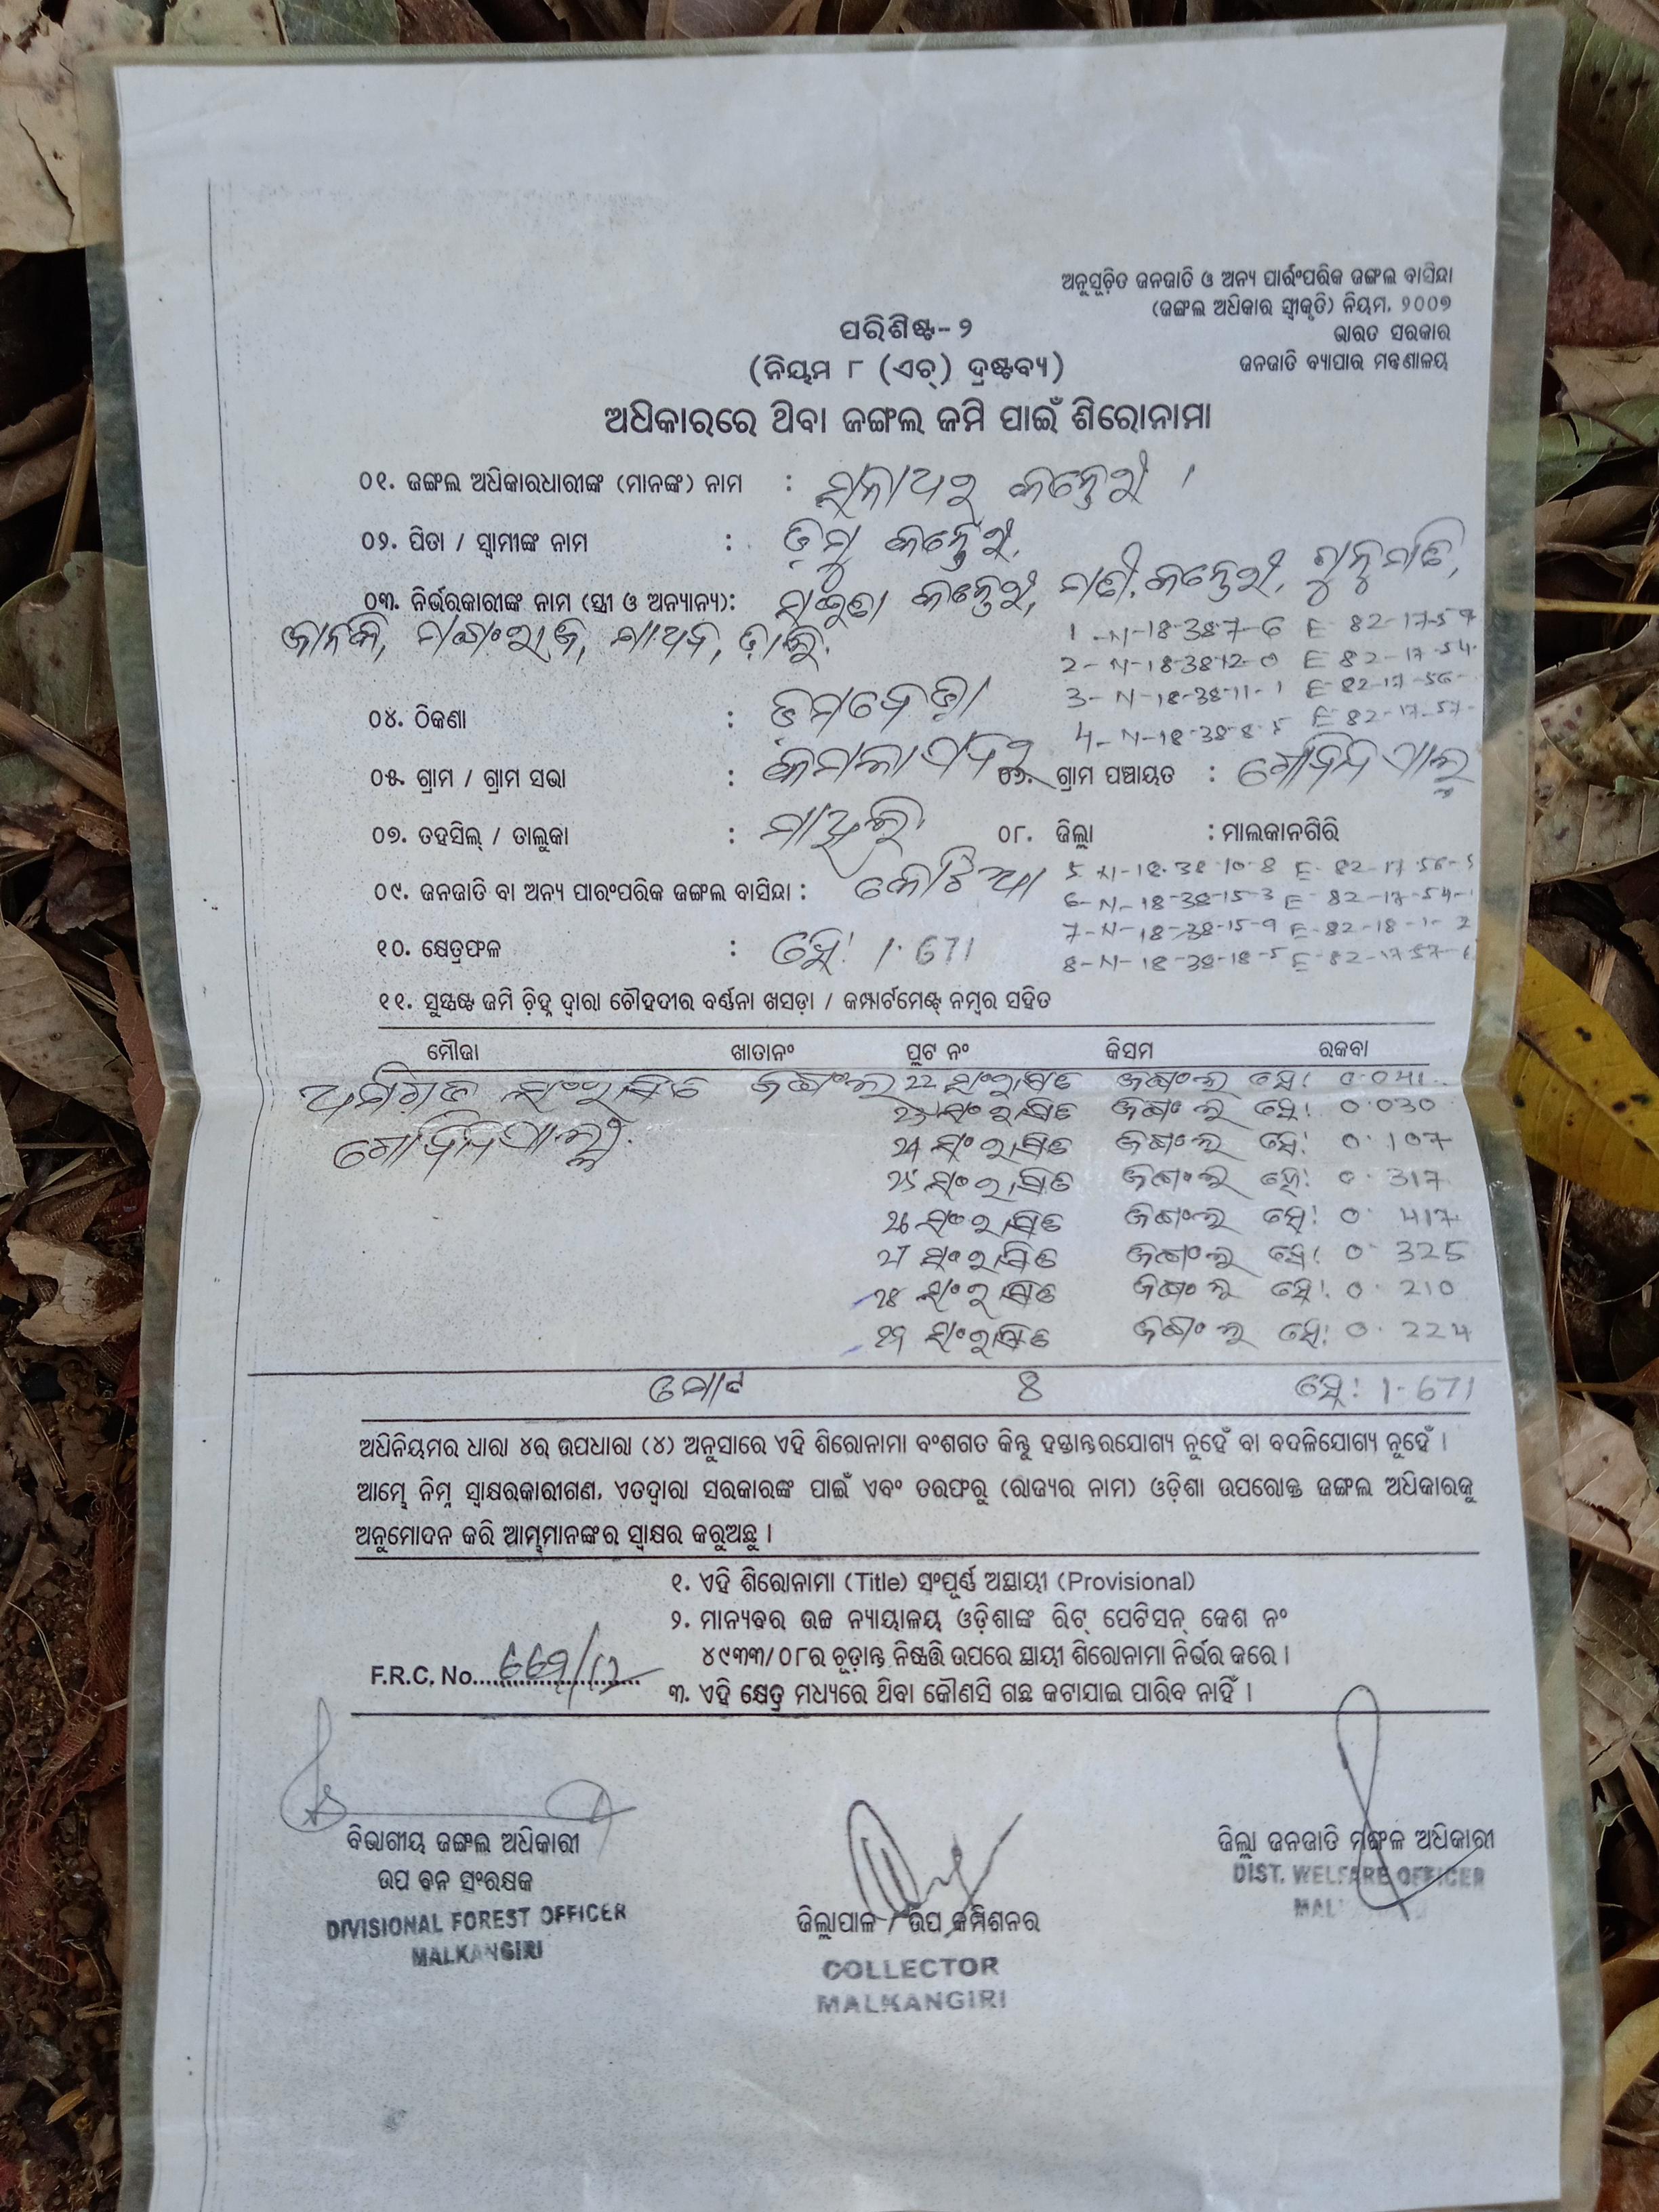 ଅନୁସୂଚିତ ଜନଜାତି ଓ ଅନ୍ୟ ପାରଂପରିକ ଜଙ୍ଗଲ ବାସିନ୍ଦା
(ଜଙ୍ଗଲ ଅଧିକାର ସ୍ୱୀକୃତି) ନିୟମ, ୨୦୦୭
ଭାରତ ସରକାର
ଜନଜାତି ବ୍ୟାପାର ମନ୍ତ୍ରଣାଳୟ
ପରିଶିଷ୍ଟ-୨
(ନିୟମ ୮ (ଏଚ୍) ଦ୍ରଷ୍ଟବ୍ୟ)
ଅଧିକାରରେ ଥିବା ଜଙ୍ଗଲ ଜମି ପାଇଁ ଶିରୋନାମା
୦୧. ଜଙ୍ଗଲ ଅଧିକାରଧାରୀଙ୍କ (ମାନଙ୍କ) ନାମ :
୦୨. ପିତା / ସ୍ୱାମୀଙ୍କ ନାମ :
୦୩. ନିର୍ଭରକାରୀଙ୍କ ନାମ (ସ୍ତ୍ରୀ ଓ ଅନ୍ୟାନ୍ୟ):
ଜାନକି,
1-N-18-38-7-6 E-82-17-59
2-N-18-38-12-0 E-82-17-54
3-N-18-38-11-1 E-82-17-56
4-N-18-38-8-5 E-82-17-57
୦୪. ଠିକଣା :
୦୫. ଗ୍ରାମ / ଗ୍ରାମ ସଭା : ୦୬. ଗ୍ରାମ ପଞ୍ଚାୟତ :
୦୭. ତହସିଲ୍ / ତାଲୁକା : ୦୮. ଜିଲ୍ଲା : ମାଲକାନଗିରି
5-N-18-38-10-8 E-82-17-56-5
6-N-18-38-15-3 E-82-17-54
7-N-18-38-15-9 E-82-18-1-2
8-N-18-38-18-5 E-82-17-57-6
୦୯. ଜନଜାତି ବା ଅନ୍ୟ ପାରଂପରିକ ଜଙ୍ଗଲ ବାସିନ୍ଦା :
୧୦. କ୍ଷେତ୍ରଫଳ : ହେ: 1.671
୧୧. ସୁସ୍ପଷ୍ଟ ଜମି ଚିହ୍ନ ଦ୍ୱାରା ଚୌହଦୀର ବର୍ଣ୍ଣନା ଖସଡ଼ା / କମ୍ପାର୍ଟମେଣ୍ଟ୍ ନମ୍ବର ସହିତ
ମୌଜା ଖାତାନଂ ପ୍ଲଟ ନଂ କିସମ ରକବା
ସଂରକ୍ଷିତ ଜଙ୍ଗଲ 22 ସଂରକ୍ଷିତ ଜଙ୍ଗଲ ହେ: 0.041
23 ସଂରକ୍ଷିତ ଜଙ୍ଗଲ ହେ: 0.030
24 ସଂରକ୍ଷିତ ଜଙ୍ଗଲ ହେ: 0.107
25 ସଂରକ୍ଷିତ ଜଙ୍ଗଲ ହେ: 0.317
26 ସଂରକ୍ଷିତ ଜଙ୍ଗଲ ହେ: 0.417
27 ସଂରକ୍ଷିତ ଜଙ୍ଗଲ ହେ: 0.325
28 ସଂରକ୍ଷିତ ଜଙ୍ଗଲ ହେ: 0.210
29 ସଂରକ୍ଷିତ ଜଙ୍ଗଲ ହେ: 0.224
ମୋଟ 8 ହେ: 1.671
ଅଧିନିୟମର ଧାରା ୪ର ଉପଧାରା (୪) ଅନୁସାରେ ଏହି ଶିରୋନାମା ବଂଶଗତ କିନ୍ତୁ ହସ୍ତାନ୍ତରଯୋଗ୍ୟ ନୁହେଁ ବା ବଦଳିଯୋଗ୍ୟ ନୁହେଁ ।
ଆମ୍ଭେ ନିମ୍ନ ସ୍ୱାକ୍ଷରକାରୀଗଣ, ଏତଦ୍ୱାରା ସରକାରଙ୍କ ପାଇଁ ଏବଂ ତରଫରୁ (ରାଜ୍ୟର ନାମ) ଓଡ଼ିଶା ଉପରୋକ୍ତ ଜଙ୍ଗଲ ଅଧିକାରକୁ
ଅନୁମୋଦନ କରି ଆମ୍ଭମାନଙ୍କର ସ୍ୱାକ୍ଷର କରୁଅଛୁ ।
୧. ଏହି ଶିରୋନାମା (Title) ସଂପୂର୍ଣ୍ଣ ଅସ୍ଥାୟୀ (Provisional)
୨. ମାନ୍ୟବର ଉଚ୍ଚ ନ୍ୟାୟାଳୟ ଓଡ଼ିଶାଙ୍କ ରିଟ୍ ପେଟିସନ୍ କେଶ ନଂ
୪୯୩୩/୦୮ର ଚୂଡ଼ାନ୍ତ ନିଷ୍ପତ୍ତି ଉପରେ ସ୍ଥାୟୀ ଶିରୋନାମା ନିର୍ଭର କରେ ।
F.R.C. No.
୩. ଏହି କ୍ଷେତ୍ର ମଧ୍ୟରେ ଥିବା କୌଣସି ଗଛ କଟାଯାଇ ପାରିବ ନାହିଁ ।
ବିଭାଗୀୟ ଜଙ୍ଗଲ ଅଧିକାରୀ
ଉପ ବନ ସଂରକ୍ଷକ
DIVISIONAL FOREST OFFICER
MALKANGIRI
ଜିଲ୍ଲାପାଳ / ଉପ କମିଶନର
COLLECTOR
MALKANGIRI
ଜିଲ୍ଲା ଜନଜାତି ମଙ୍ଗଳ ଅଧିକାରୀ
DIST. WELFARE OFFICER